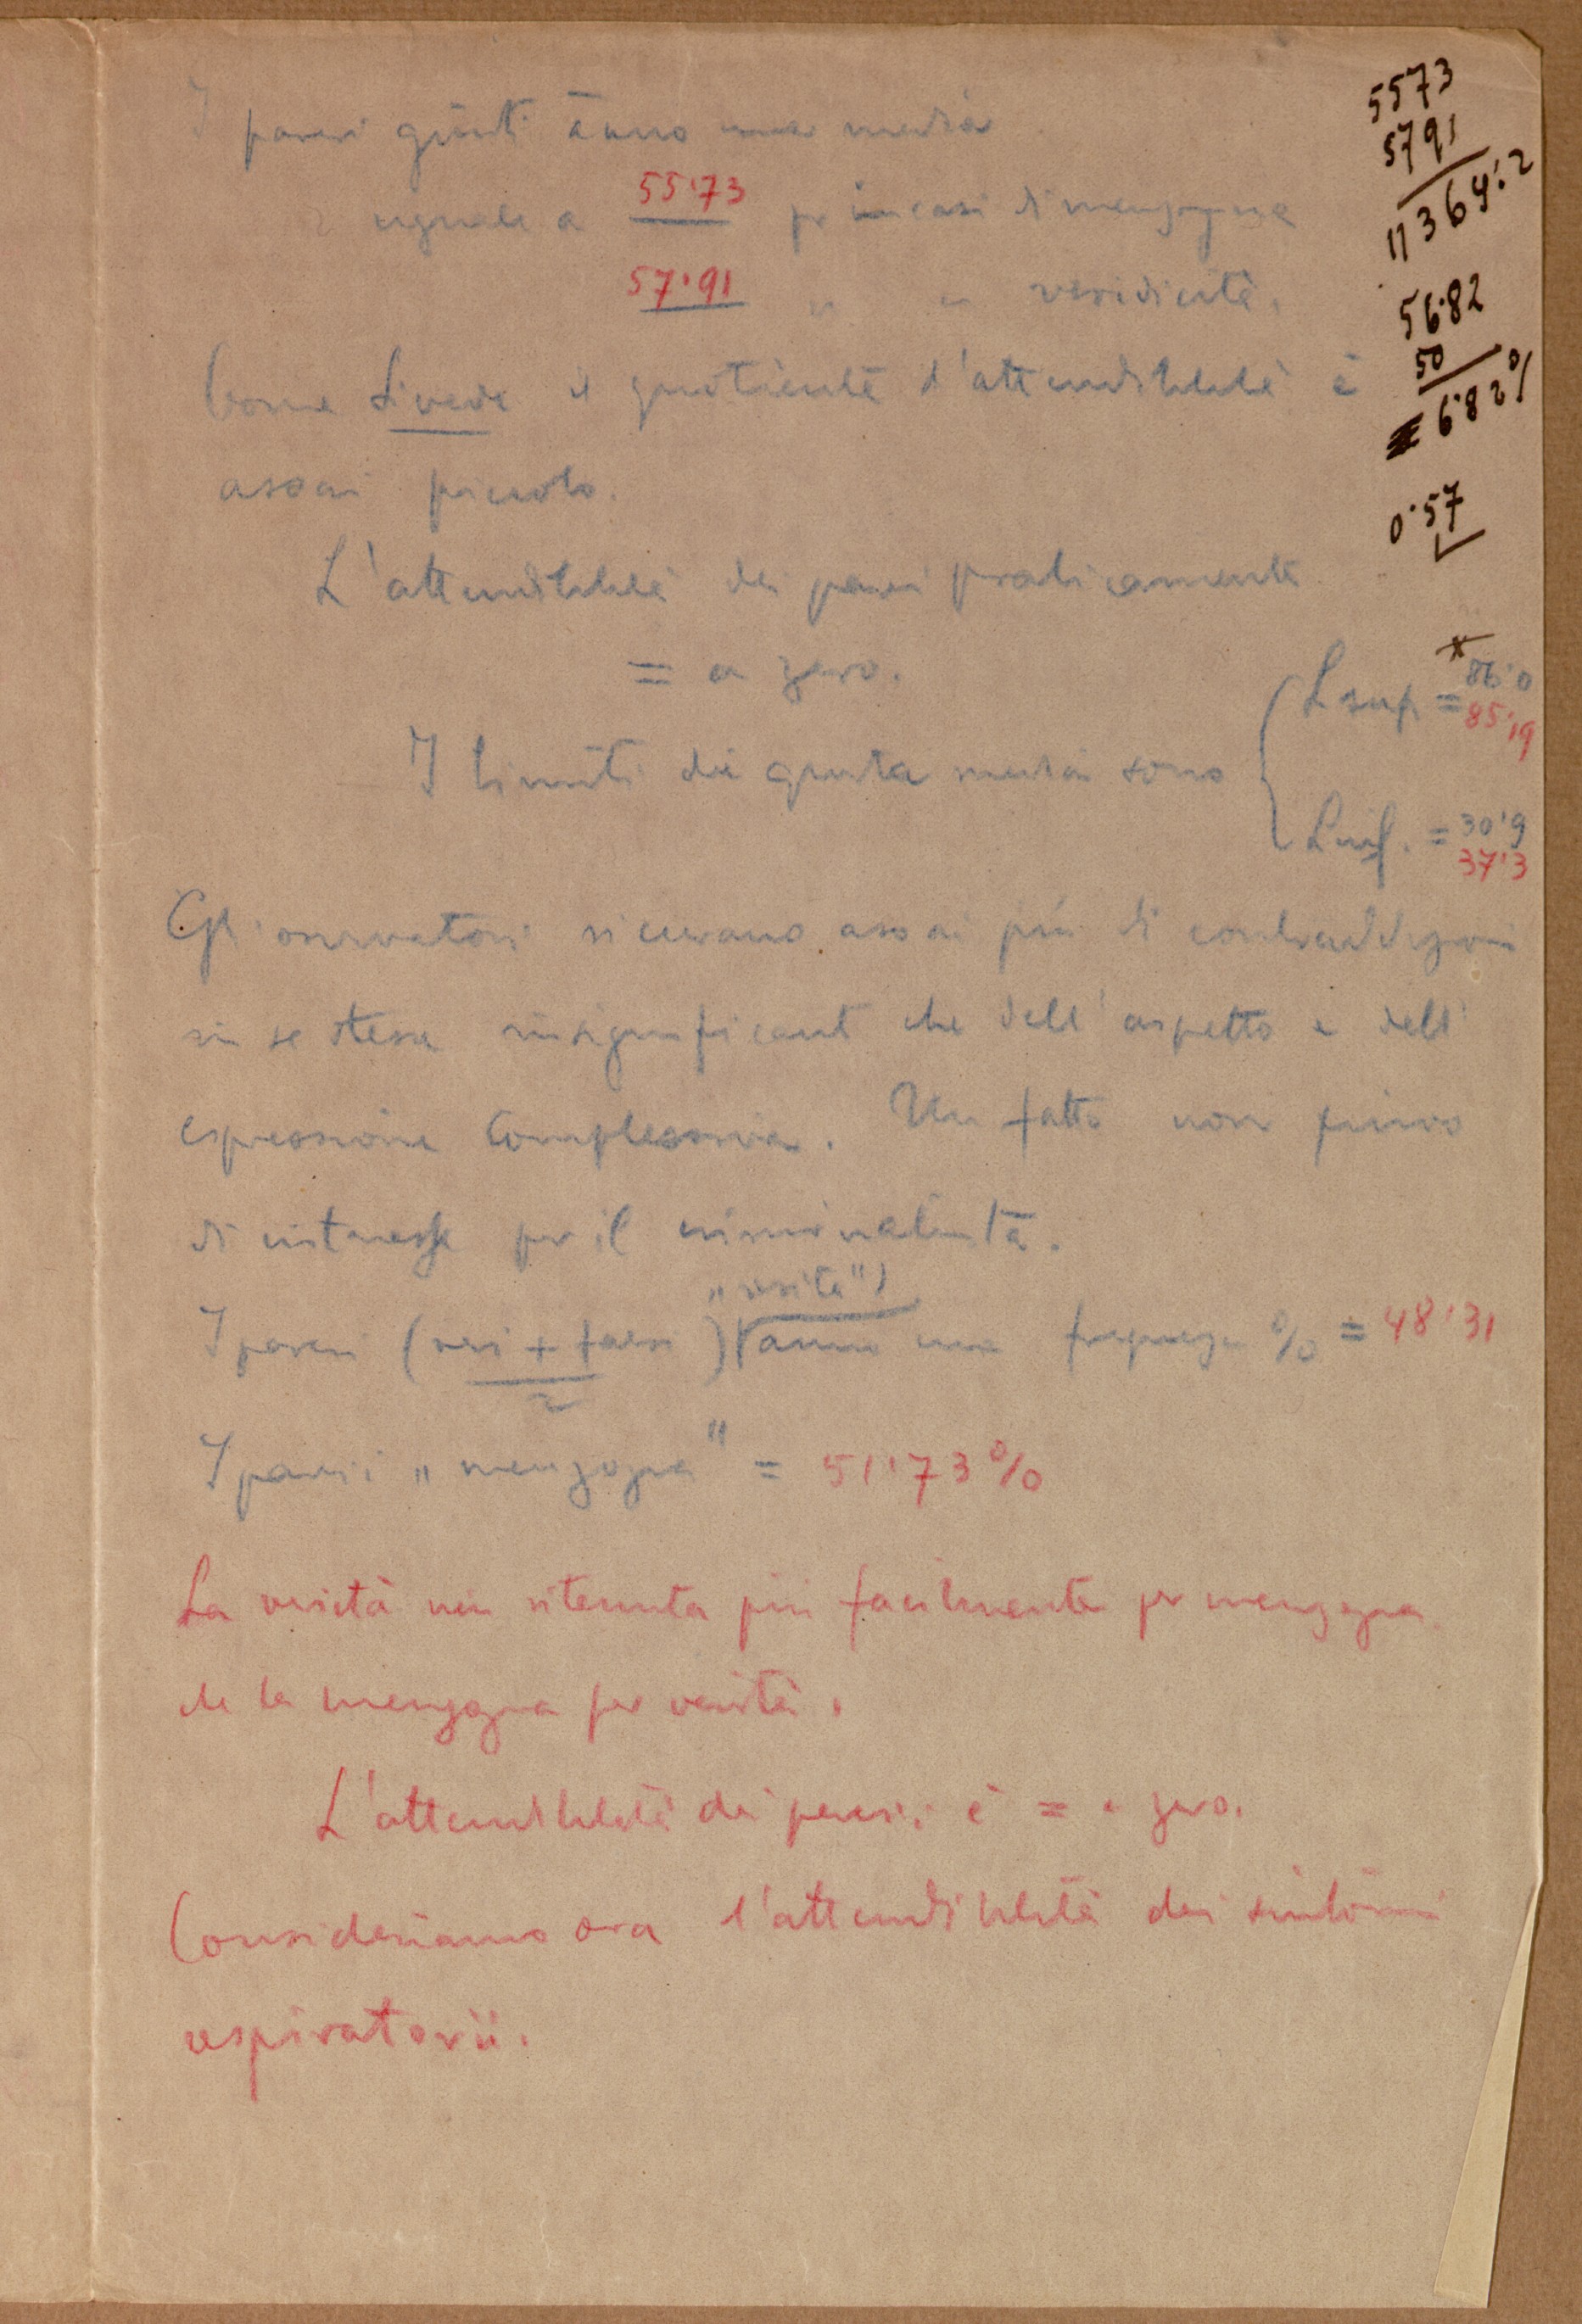 I pareri giusti ànno una media
uguale a 55'73 per i casi di menzogna
57'91 " " veridicità.
Come si vede il quotiente d'attendibilità è
assai piccolo.
L'attendibilità dei pareri praticamente
= a zero.
I limiti di questa media sono { L sup. = 86'0
85'19
L inf. = 30'9
37'3
Gli osservatori si curano assai più di contraddizioni
in se stesse insignificanti che dell'aspetto e dell'
espressione complessiva. Un fatto non privo
di interesse per il criminalista.
"verità")
I pareri (veri + falsi) ànno una frequenza % = 48'31
2
I pareri „menzogna" = 51'73%
La verità vien ritenuta più facilmente per menzogna
che la menzogna per verità.
L'attendibilità dei pareri è = a zero.
Consideriamo ora l'attendibilità dei sintomi
respiratorii.
5573
5791
11364:2
56'82
50
6'82%
0'57